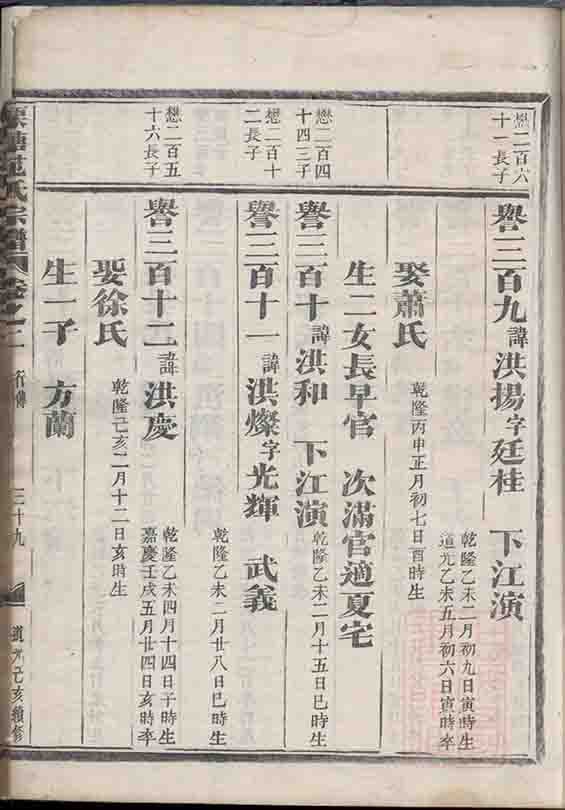 懋二百六
十一長子
譽三百九諱洪揚字廷桂 下江演
乾隆乙未二月初九日寅時生
道光乙未五月初六日寅時卒
娶蕭氏
乾隆丙申正月初七日酉時生
生二女長早官 次滿官適夏宅
懋二百四
十四三子
譽三百十諱洪和 下江演
乾隆乙未二月十五日巳時生
懋二百十
二長子
譽三百十一諱洪燦字光輝 武義
乾隆乙未二月廿八日巳時生
懋二百五
十六長子
譽三百十二諱洪慶
乾隆乙未四月十四日子時生
嘉慶壬戌五月廿四日亥時卒
娶徐氏
乾隆己亥二月十二日亥時生
生一子 方蘭
范氏宗譜 卷之二 行傳 三十九 道光己亥續修